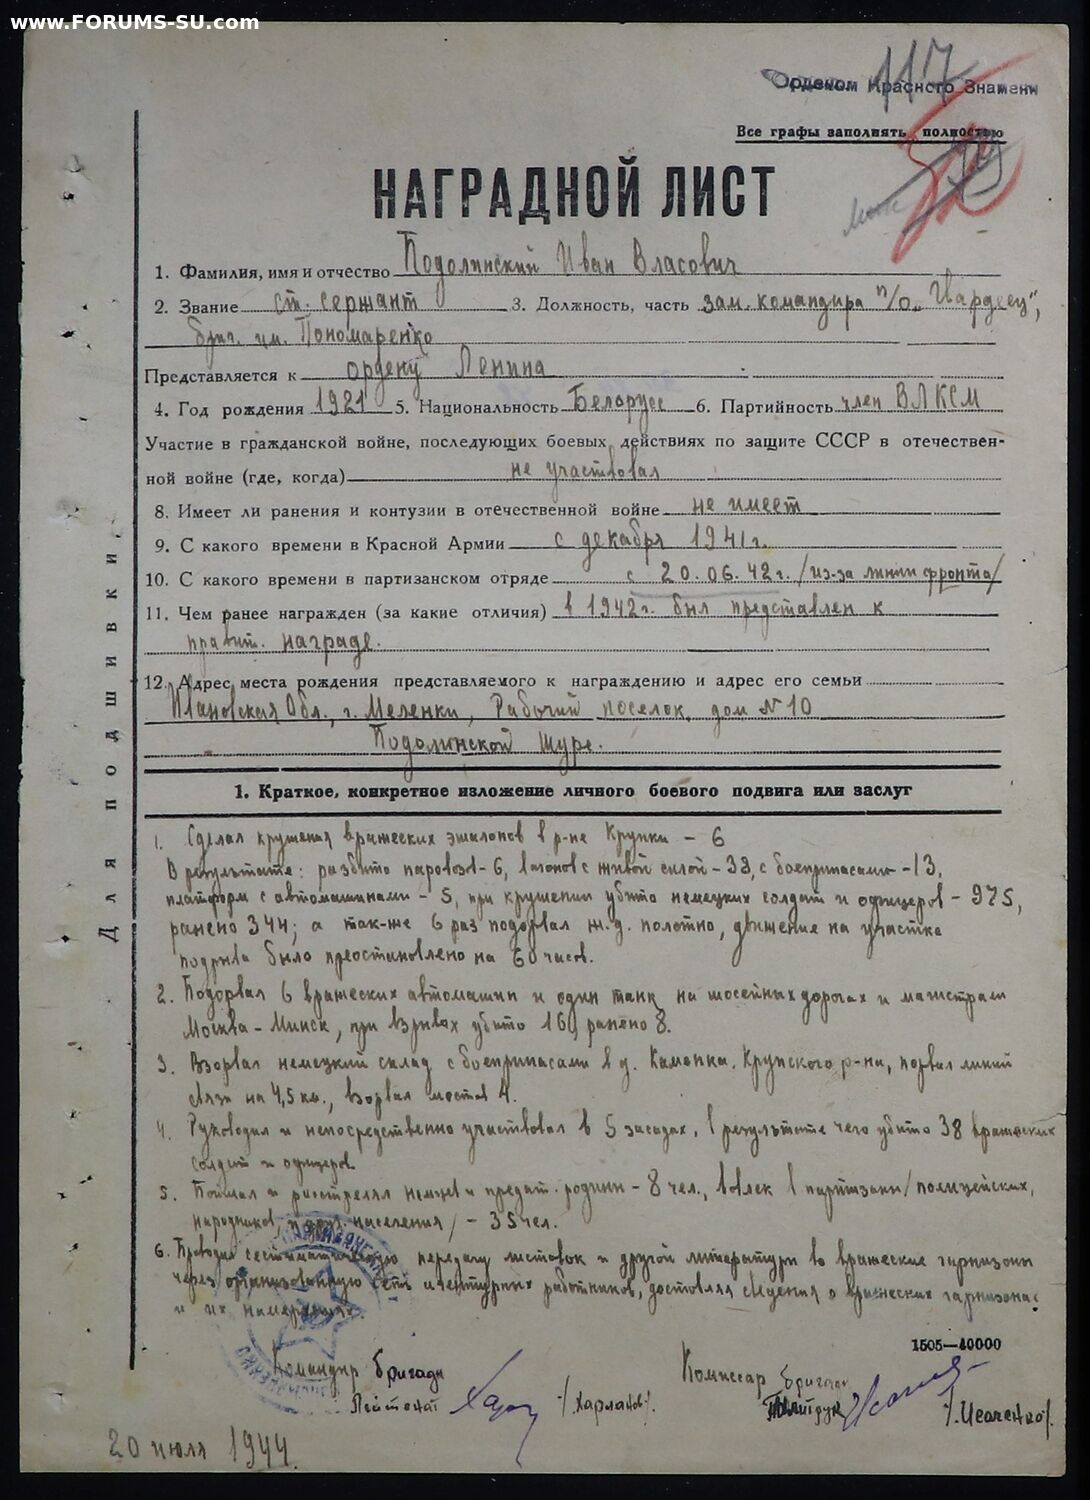 www.FORUMS-SU.com
117
Орденом Красного Знамени
Все графы заполнять полностью
НАГРАДНОЙ ЛИСТ
1. Фамилия, имя и отчество Подолинский Иван Власович
2. Звание ст. сержант 3. Должность, часть зам. командира п/о „Гвардеец",
бриг. им. Пономаренко
Представляется к ордену Ленина
4. Год рождения 1921 5. Национальность Беларусс 6. Партийность член ВЛКСМ
Участие в гражданской войне, последующих боевых действиях по защите СССР в отечествен-
ной войне (где, когда) не участвовал
8. Имеет ли ранения и контузии в отечественной войне не имеет
9. С какого времени в Красной Армии с декабря 1941 г.
10. С какого времени в партизанском отряде с 20.06.42 г. /из-за линии фронта/
11. Чем ранее награжден (за какие отличия) в 1942 г. был представлен к
правит. награде.
12. Адрес места рождения представляемого к награждению и адрес его семьи
Ивановская Обл., г. Меленки, Рабочий поселок, дом № 10
Подолинской Шуре.
Для подшивки.
1. Краткое, конкретное изложение личного боевого подвига или заслуг
1. Сделал крушения вражеских эшалонов в р-не Крупки – 6
В результате: разбито паровозов - 6, вагонов с живой силой - 33, с боеприпасами - 13,
платформ с автомашинами - 5, при крушении убито немецких солдат и офицеров - 975,
ранено 344; а так-же 6 раз подорвал ж.д. полотно, движение на участке
подрыва было преостановлено на 60 часов.
2. Подорвал 6 вражеских автомашин и один танк на шосейных дорогах и магистрали
Москва - Минск, при взрывах убито 16, ранено 8.
3. Взорвал немецкий склад с боеприпасами в д. Каменка, Крупского р-на, порвал линий
связи на 4,5 км., взорвал мостов 4.
4. Руководил и непосредственно участвовал в 5 засадах, в результате чего убито 38 вражеских
солдат и офицеров.
5. Поймал и расстрелял немцев и предат. родины - 8 чел., вовлек в партизаны /полицейских,
народников, и друг. населения/ - 35 чел.
6. Проводил систиматическую передачу листовок и другой литературы во вражеские гарнизоны
через организованную сеть агентурных работников, доставлял сведения о вражеских гарнизонах
и их намерениях.
1505—40000
Командир бригады
Лейтенат /Харланов/.
Комиссар бригады
Политрук /Исаченко/.
20 июля 1944